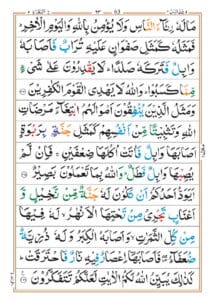 مَالَهٗ رِئَآءَ النَّاسِ وَلَا يُؤْمِنُ بِاللّٰهِ وَالْيَوْمِ الْاٰخِرِ
فَمَثَلُهٗ كَمَثَلِ صَفْوَانٍ عَلَيْهِ تُرَابٌ فَاَصَابَهٗ
وَابِلٌ فَتَرَكَهٗ صَلْدًا لَا يَقْدِرُوْنَ عَلٰى شَىْءٍ
مِّمَّا كَسَبُوْا وَاللّٰهُ لَا يَهْدِى الْقَوْمَ الْكٰفِرِيْنَ
وَمَثَلُ الَّذِيْنَ يُنْفِقُوْنَ اَمْوَالَهُمُ ابْتِغَآءَ مَرْضَاتِ
اللّٰهِ وَتَثْبِيْتًا مِّنْ اَنْفُسِهِمْ كَمَثَلِ جَنَّةٍ بِرَبْوَةٍ
اَصَابَهَا وَابِلٌ فَاٰتَتْ اُكُلَهَا ضِعْفَيْنِ فَاِنْ لَّمْ
يُصِبْهَا وَابِلٌ فَطَلٌّ وَاللّٰهُ بِمَا تَعْمَلُوْنَ بَصِيْرٌ
اَيَوَدُّ اَحَدُكُمْ اَنْ تَكُوْنَ لَهٗ جَنَّةٌ مِّنْ نَّخِيْلٍ وَّ
اَعْنَابٍ تَجْرِىْ مِنْ تَحْتِهَا الْاَنْهٰرُ لَهٗ فِيْهَا
مِنْ كُلِّ الثَّمَرٰتِ وَاَصَابَهُ الْكِبَرُ وَلَهٗ ذُرِّيَّةٌ
ضُعَفَآءُ فَاَصَابَهَآ اِعْصَارٌ فِيْهِ نَارٌ فَاحْتَرَقَتْ
كَذٰلِكَ يُبَيِّنُ اللّٰهُ لَكُمُ الْاٰيٰتِ لَعَلَّكُمْ تَتَفَكَّرُوْنَ